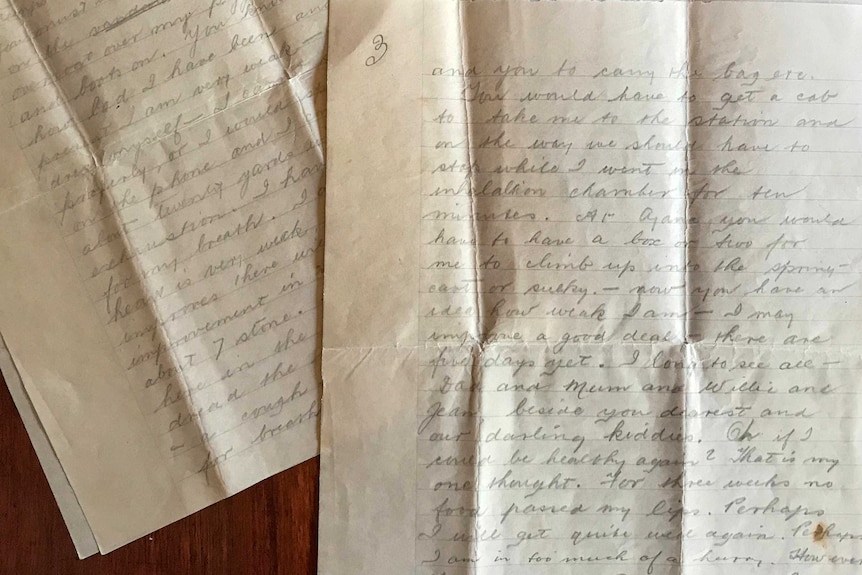 on the
overcoat over my
and boots on. You
how bad I have been and
I am very weak -
dress myself - I
properly, or I would
on the phone and I
about twenty yards
exhaustion. I have
for my breath. I
heart is very weak
improves there
improvement in
about 7 stone.
here in the
dread the
- a cough
for breath
3
and you to carry the bag etc.
You would have to get a cab
to take me to the station and
on the way we should have to
stop while I went in the
inhalation chamber for ten
minutes. At you would
have to have a box or two for
me to climb up into the spring-
cart or sulky. - now you have an
idea how weak I am - I may
improve a good deal - there are
five days yet. I long to see all -
Dad and Mum and Willie and
Jean, beside you dearest and
our darling kiddies. Oh if I
could be healthy again? That is my
one thought. For three weeks no
food passed my lips. Perhaps
I will get quite well again. Perhaps
I am in too much of a hurry. However